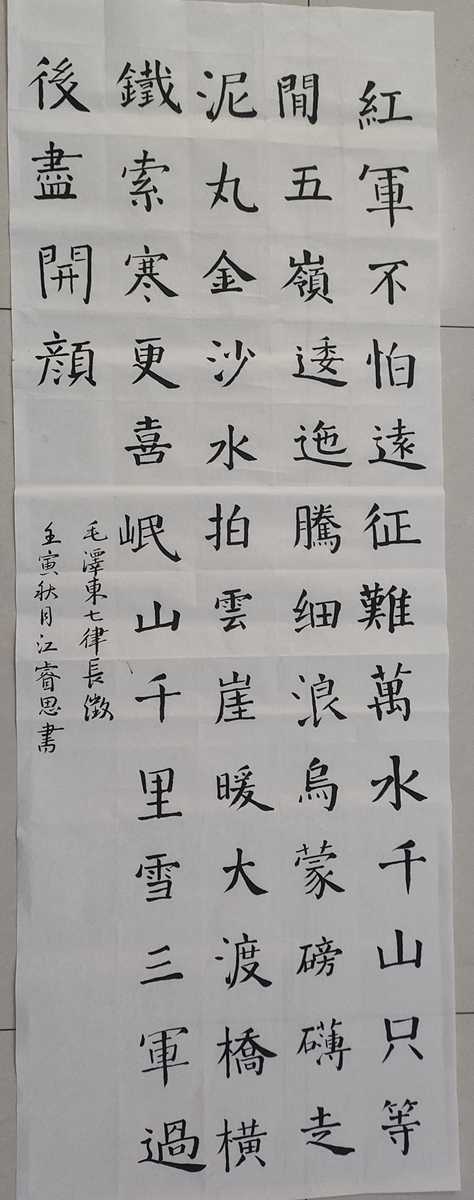 紅軍不怕遠征難萬水千山只等
閒五嶺逶迤騰细浪烏蒙磅礴走
泥丸金沙水拍雲崖暖大渡橋橫
鐵索寒更喜岷山千里雪三軍過
後盡開顔
毛澤東七律長徵
壬寅秋月江睿思書